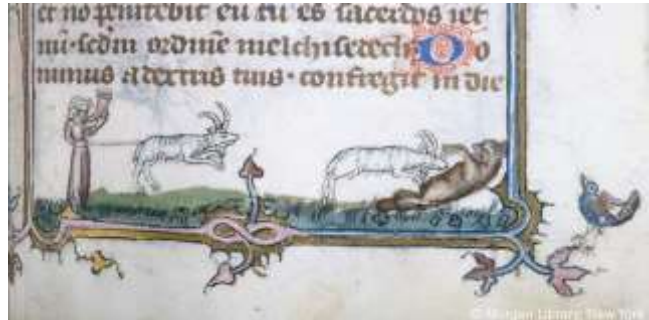 et no penitebit eu tu es sacerdos iet
nū · scdm ordinē melchisedech Do
minus a dextris tuis · confregit in die
© Morgan Library, New York